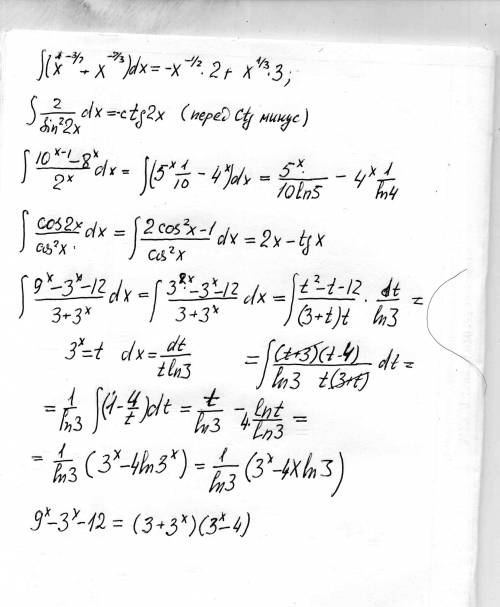 ∫(x^{-3/2} + x^{-2/3})dx = -x^{-1/2}·2 + x^{1/3}·3;
∫ 2/sin²2x dx = -ctg2x (перед ctg минус)
∫ (10^{x-1} - 8^x)/2^x dx = ∫(5^x 1/10 - 4^x)dx = 5^x/(10ln5) - 4^x 1/ln4
∫ cos2x/cos²x dx = ∫ (2cos²x-1)/cos²x dx = 2x - tgx
∫ (9^x - 3^x - 12)/(3+3^x) dx = ∫ (3^{2x} - 3^x - 12)/(3+3^x) dx = ∫ (t²-t-12)/((3+t)t) · dt/ln3 =
3^x = t dx = dt/(t ln3) = ∫ (t+3)(t-4)/(ln3 t(3+t)) dt =
= 1/ln3 ∫(1 - 4/t)dt = t/ln3 - 4·lnt/ln3 =
= 1/ln3 (3^x - 4ln3^x) = 1/ln3 (3^x - 4xln3)
9^x - 3^x - 12 = (3+3^x)(3^x-4)